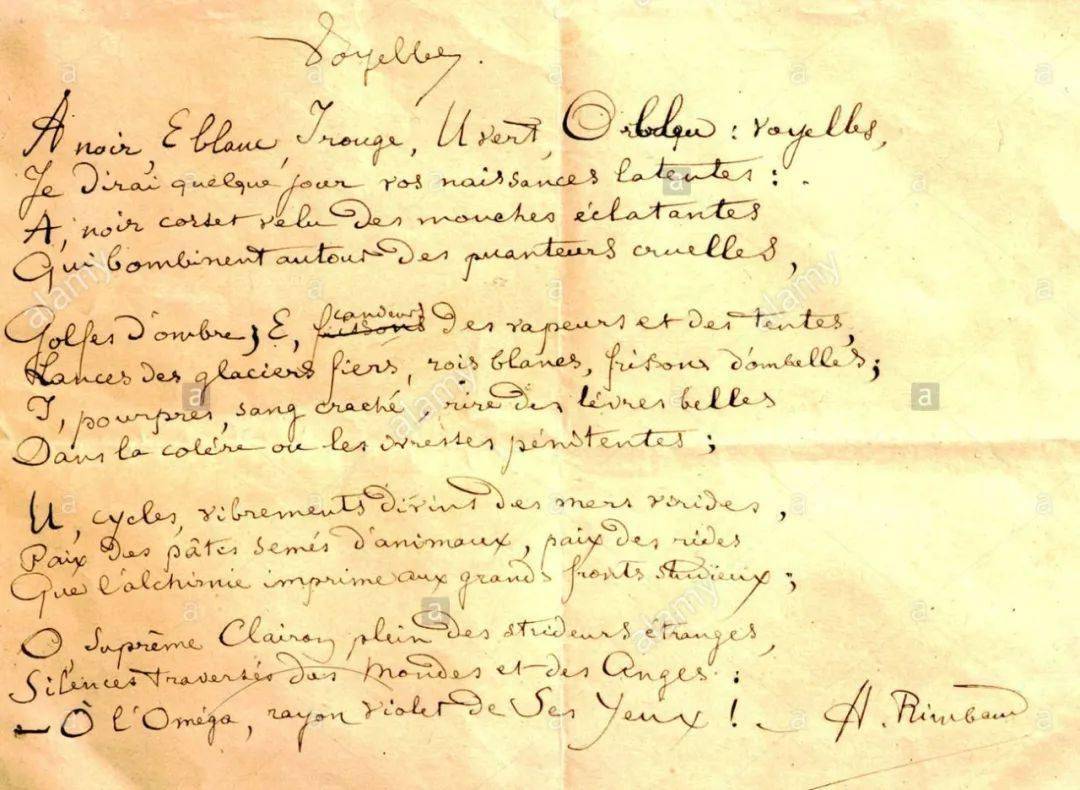 Voyelles.
A noir, E blanc, I rouge, U vert, O bleu : voyelles,
Je dirai quelque jour vos naissances latentes : .
A, noir corset velu des mouches éclatantes
Qui bombinent autour des puanteurs cruelles,
Golfes d'ombre ; E, frissons candeurs des vapeurs et des tentes,
Lances des glaciers fiers, rois blancs, frissons d'ombelles ;
I, pourpres, sang craché, rire des lèvres belles
Dans la colère ou les ivresses pénitentes ;
U, cycles, vibrements divins des mers virides,
Paix des pâtis semés d'animaux, paix des rides
Que l'alchimie imprime aux grands fronts studieux ;
O, suprême Clairon plein des strideurs étranges,
Silences traversés des Mondes et des Anges :
— O l'Oméga, rayon violet de Ses Yeux ! — A. Rimbaud
alamy